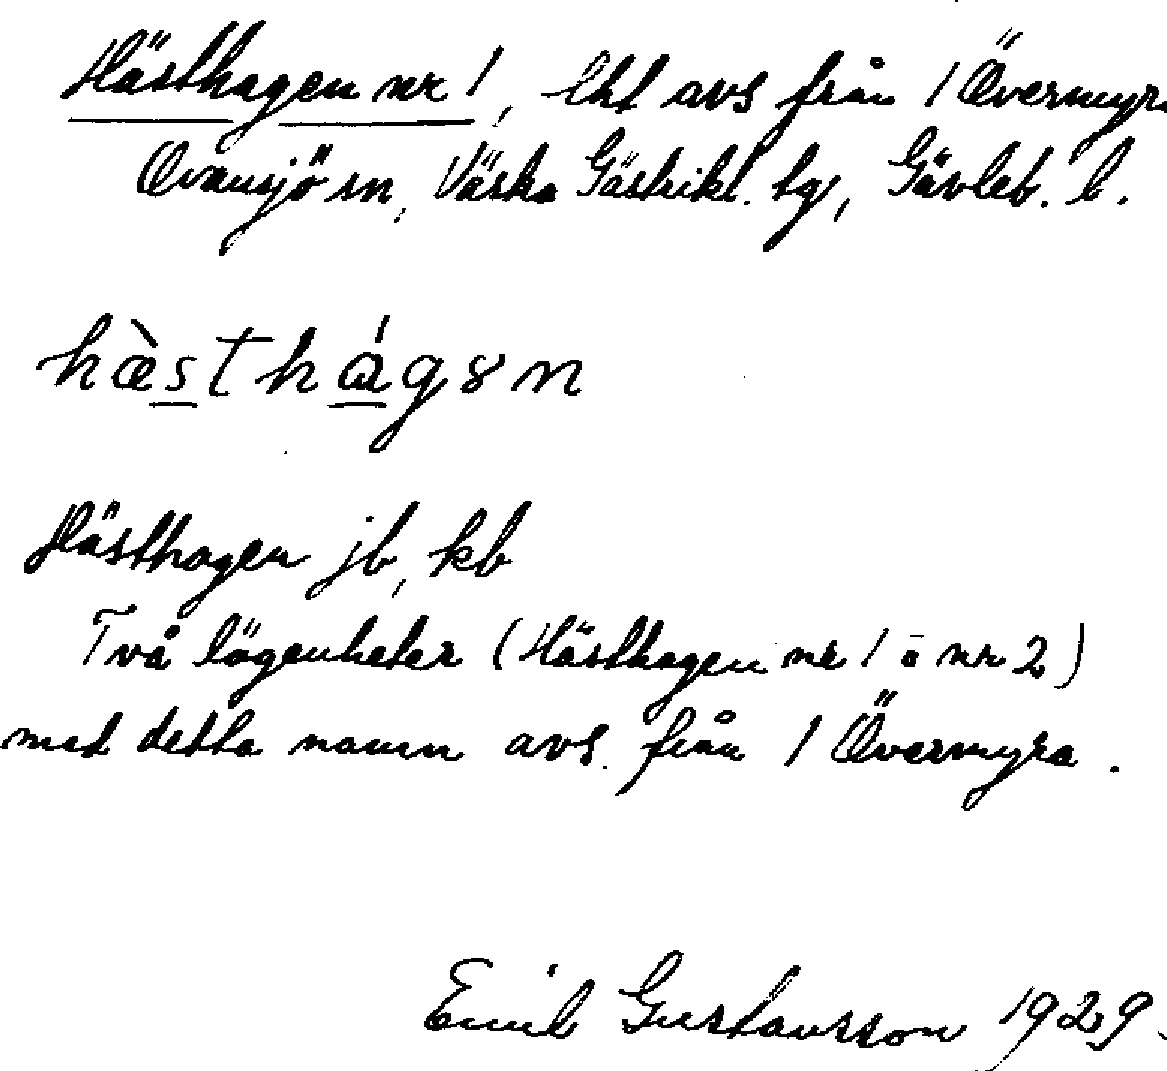 Hästhagen nr 1, lht avs från 1 Övermyra
Ovansjö sn, Västra Gästrikl. tg, Gävleb. l.
hæ̀sthágən
Hästhagen jb, kb
Två lägenheter (Hästhagen nr 1 o nr 2)
med detta namn avs. från 1 Övermyra.
Emil Gustavsson 1929.